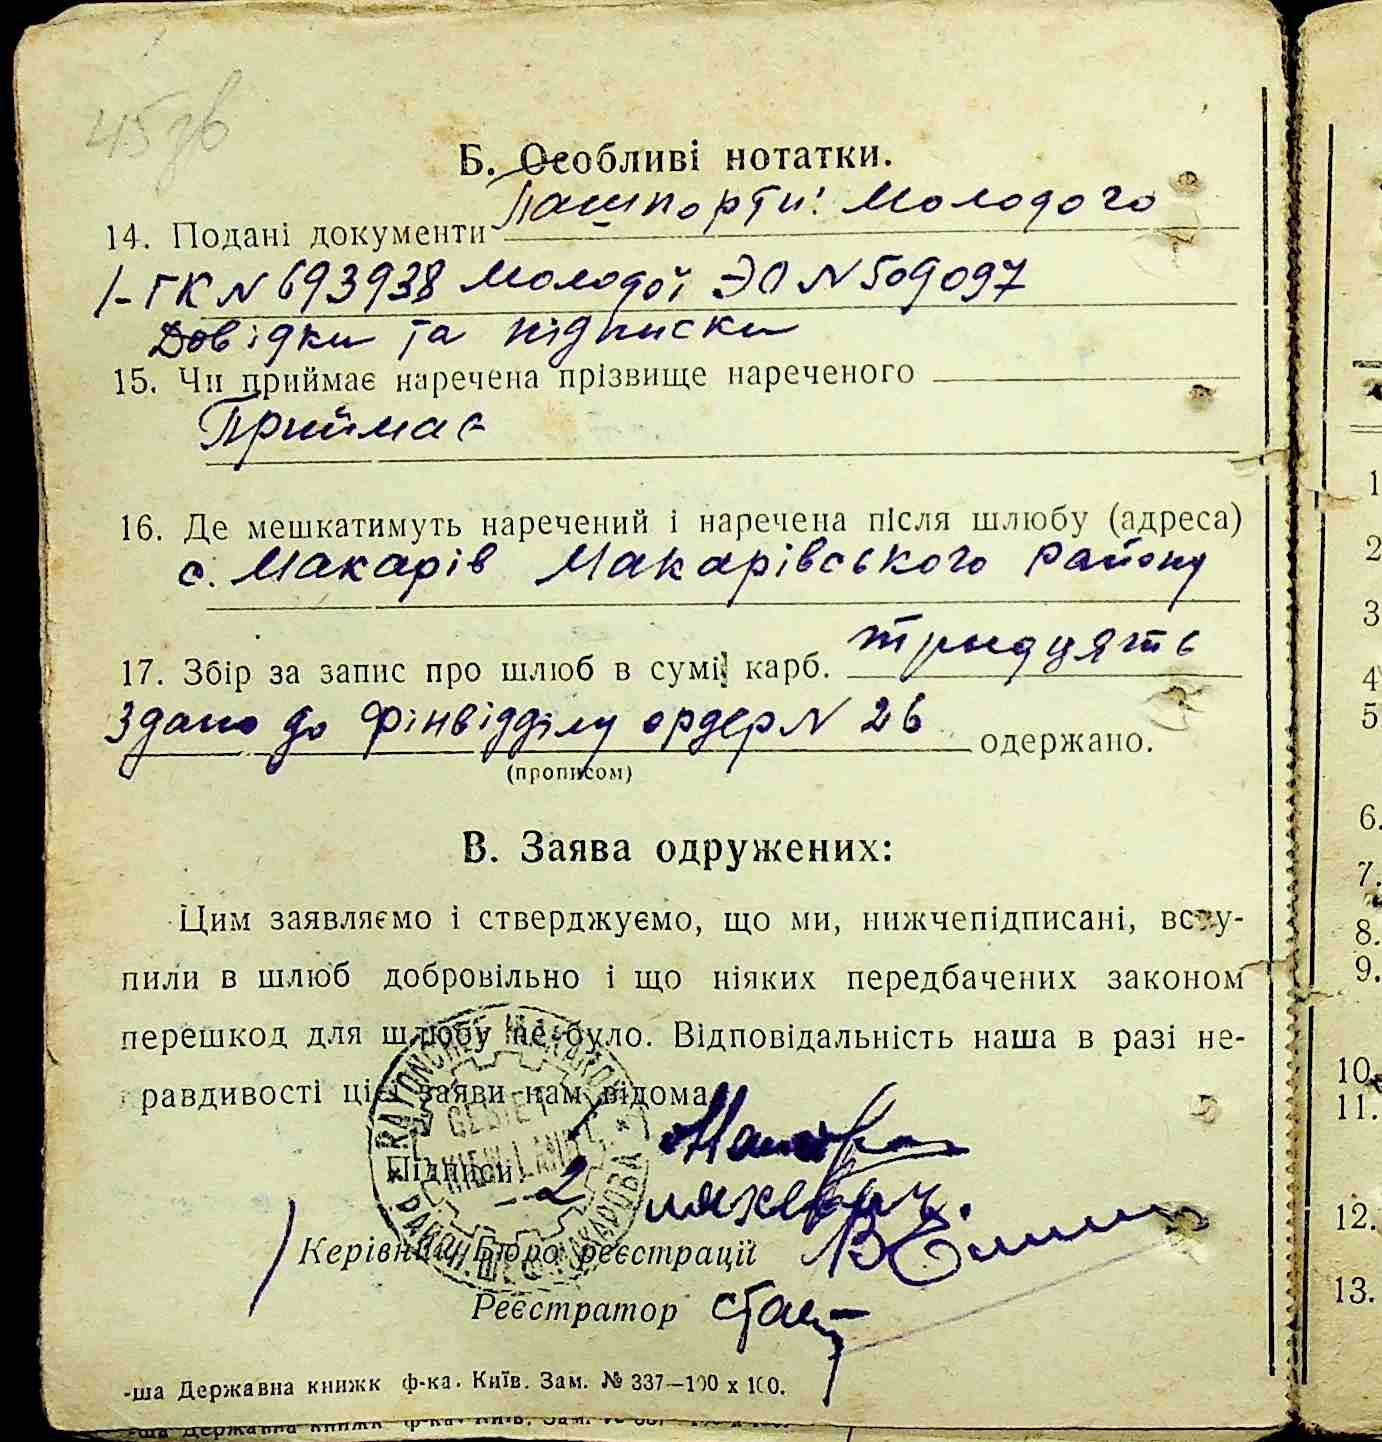 45 зв
Б. Особливі нотатки.
14. Подані документи Пашпорти: Молодого
1-ГК N 693938 Молодої ЭО N 509097
Довідки та підписки
15. Чи приймає наречена прізвище нареченого
Приймає
16. Де мешкатимуть наречений і наречена після шлюбу (адреса)
с. Макарів Макарівського району
17. Збір за запис про шлюб в сумі карб. тридцять
Здано до Фінвідділу ордер N 26 одержано.
(прописом)
В. Заява одружених:
Цим заявляємо і стверджуємо, що ми, нижчепідписані, всту-
пили в шлюб добровільно і що ніяких передбачених законом
перешкод для шлюбу не було. Відповідальність наша в разі не-
равдивості цієї заяви нам відома.
GEBIET
KIEW-LAND
Підписи: 1
2
Керівник Бюро реєстрації
Реєстратор
-ша Державна книжк ф-ка. Київ. Зам. № 337—100 х 100.
-ша Державна книжк ф-ка. Київ. Зам.
1
2
3
4
5
6.
7.
8.
9.
10.
11.
12.
13.